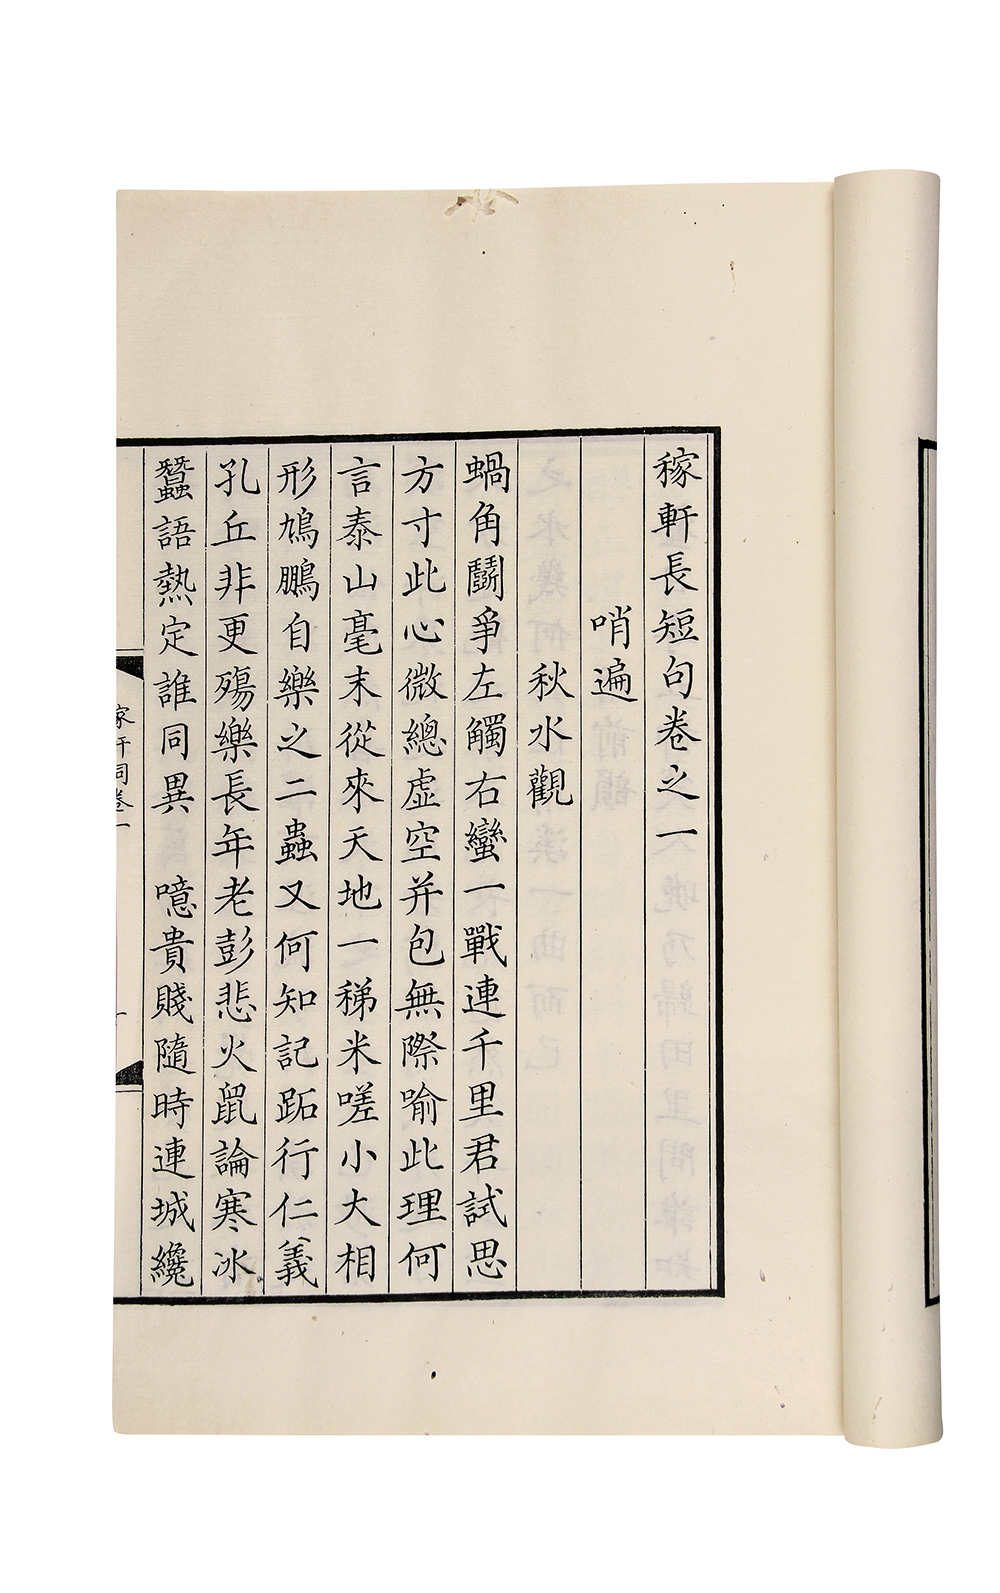 稼軒長短句卷之一
哨遍
秋水觀
蝸角鬭爭左觸右蠻一戰連千里君試思
方寸此心微總虛空并包無際喻此理何
言泰山毫末從來天地一稊米嗟小大相
形鳩鵬自樂之二蟲又何知記跖行仁義
孔丘非更殤樂長年老彭悲火鼠論寒冰
蠶語熱定誰同異　噫貴賤隨時連城纔
稼軒詞卷一